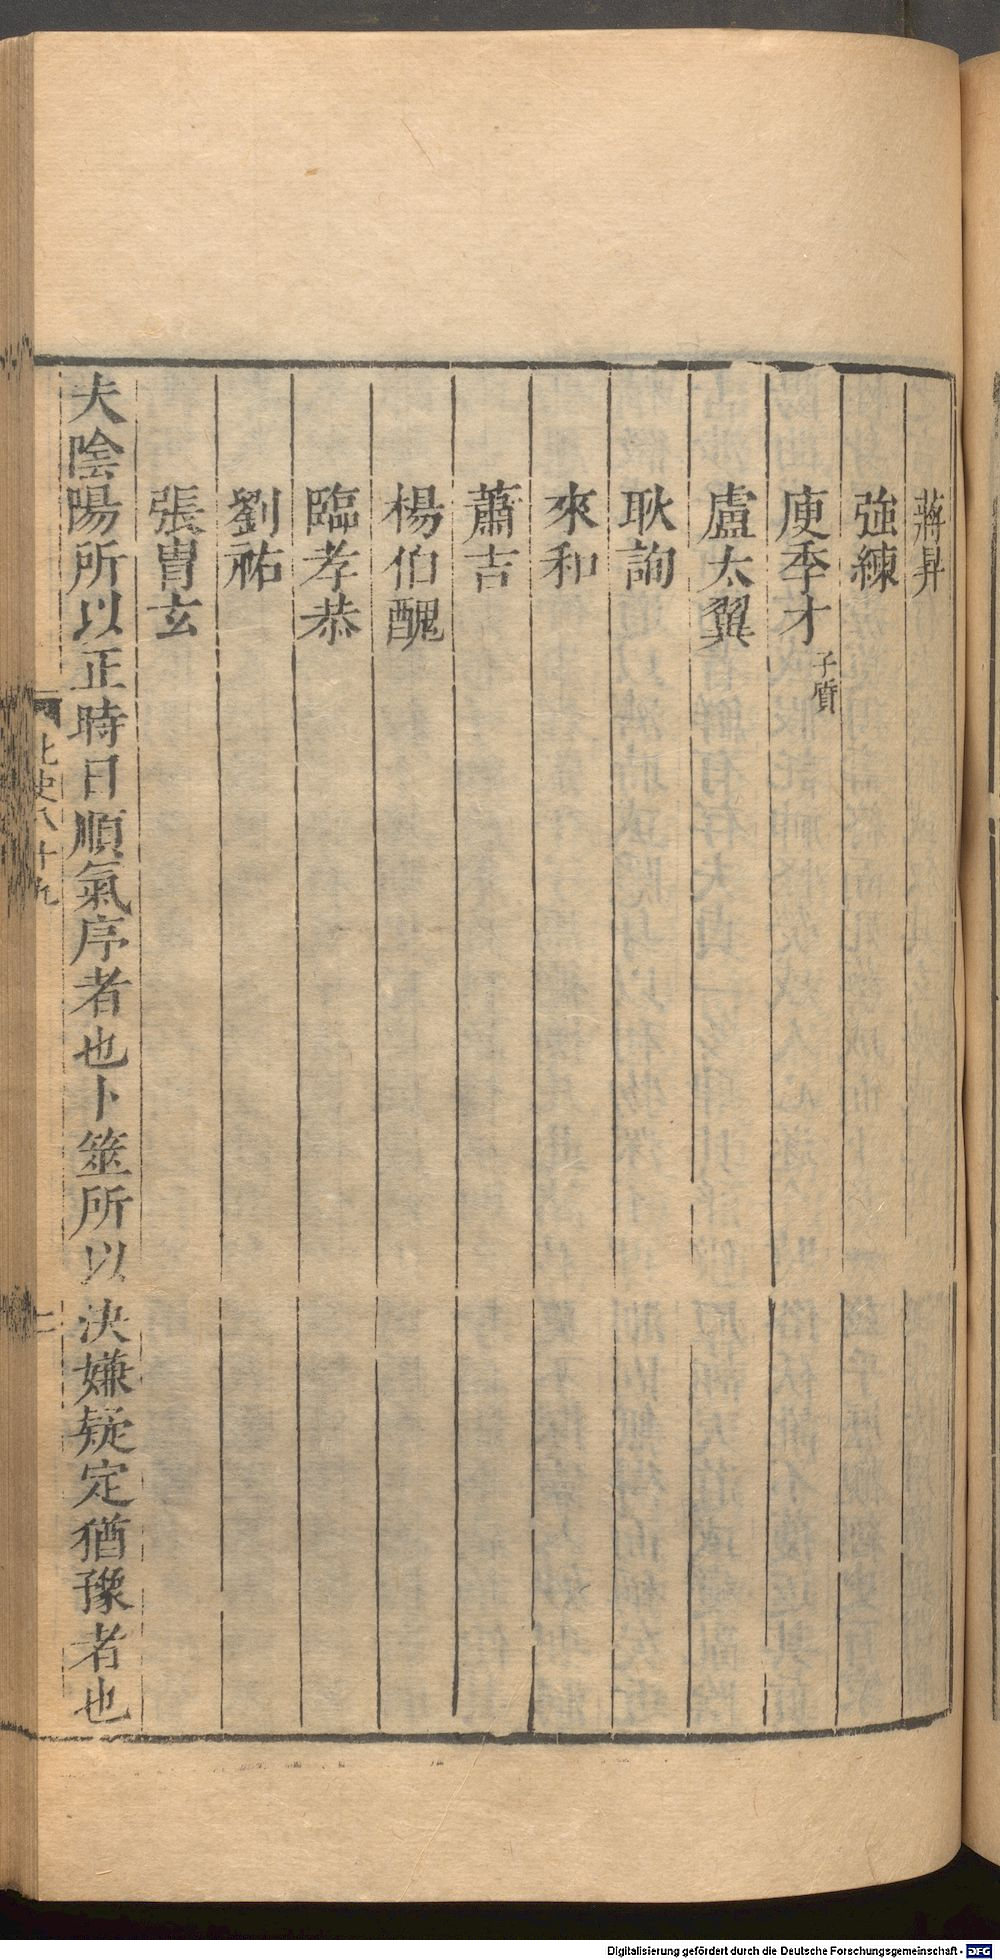 蔣昇
強練
庾季才 子質
盧太翼
耿詢
來和
蕭吉
楊伯醜
臨孝恭
劉祐
張胄玄
夫陰陽所以正時日順氣序者也卜筮所以決嫌疑定猶豫者也
北史八十九
二
Digitalisierung gefördert durch die Deutsche Forschungsgemeinschaft - DFG